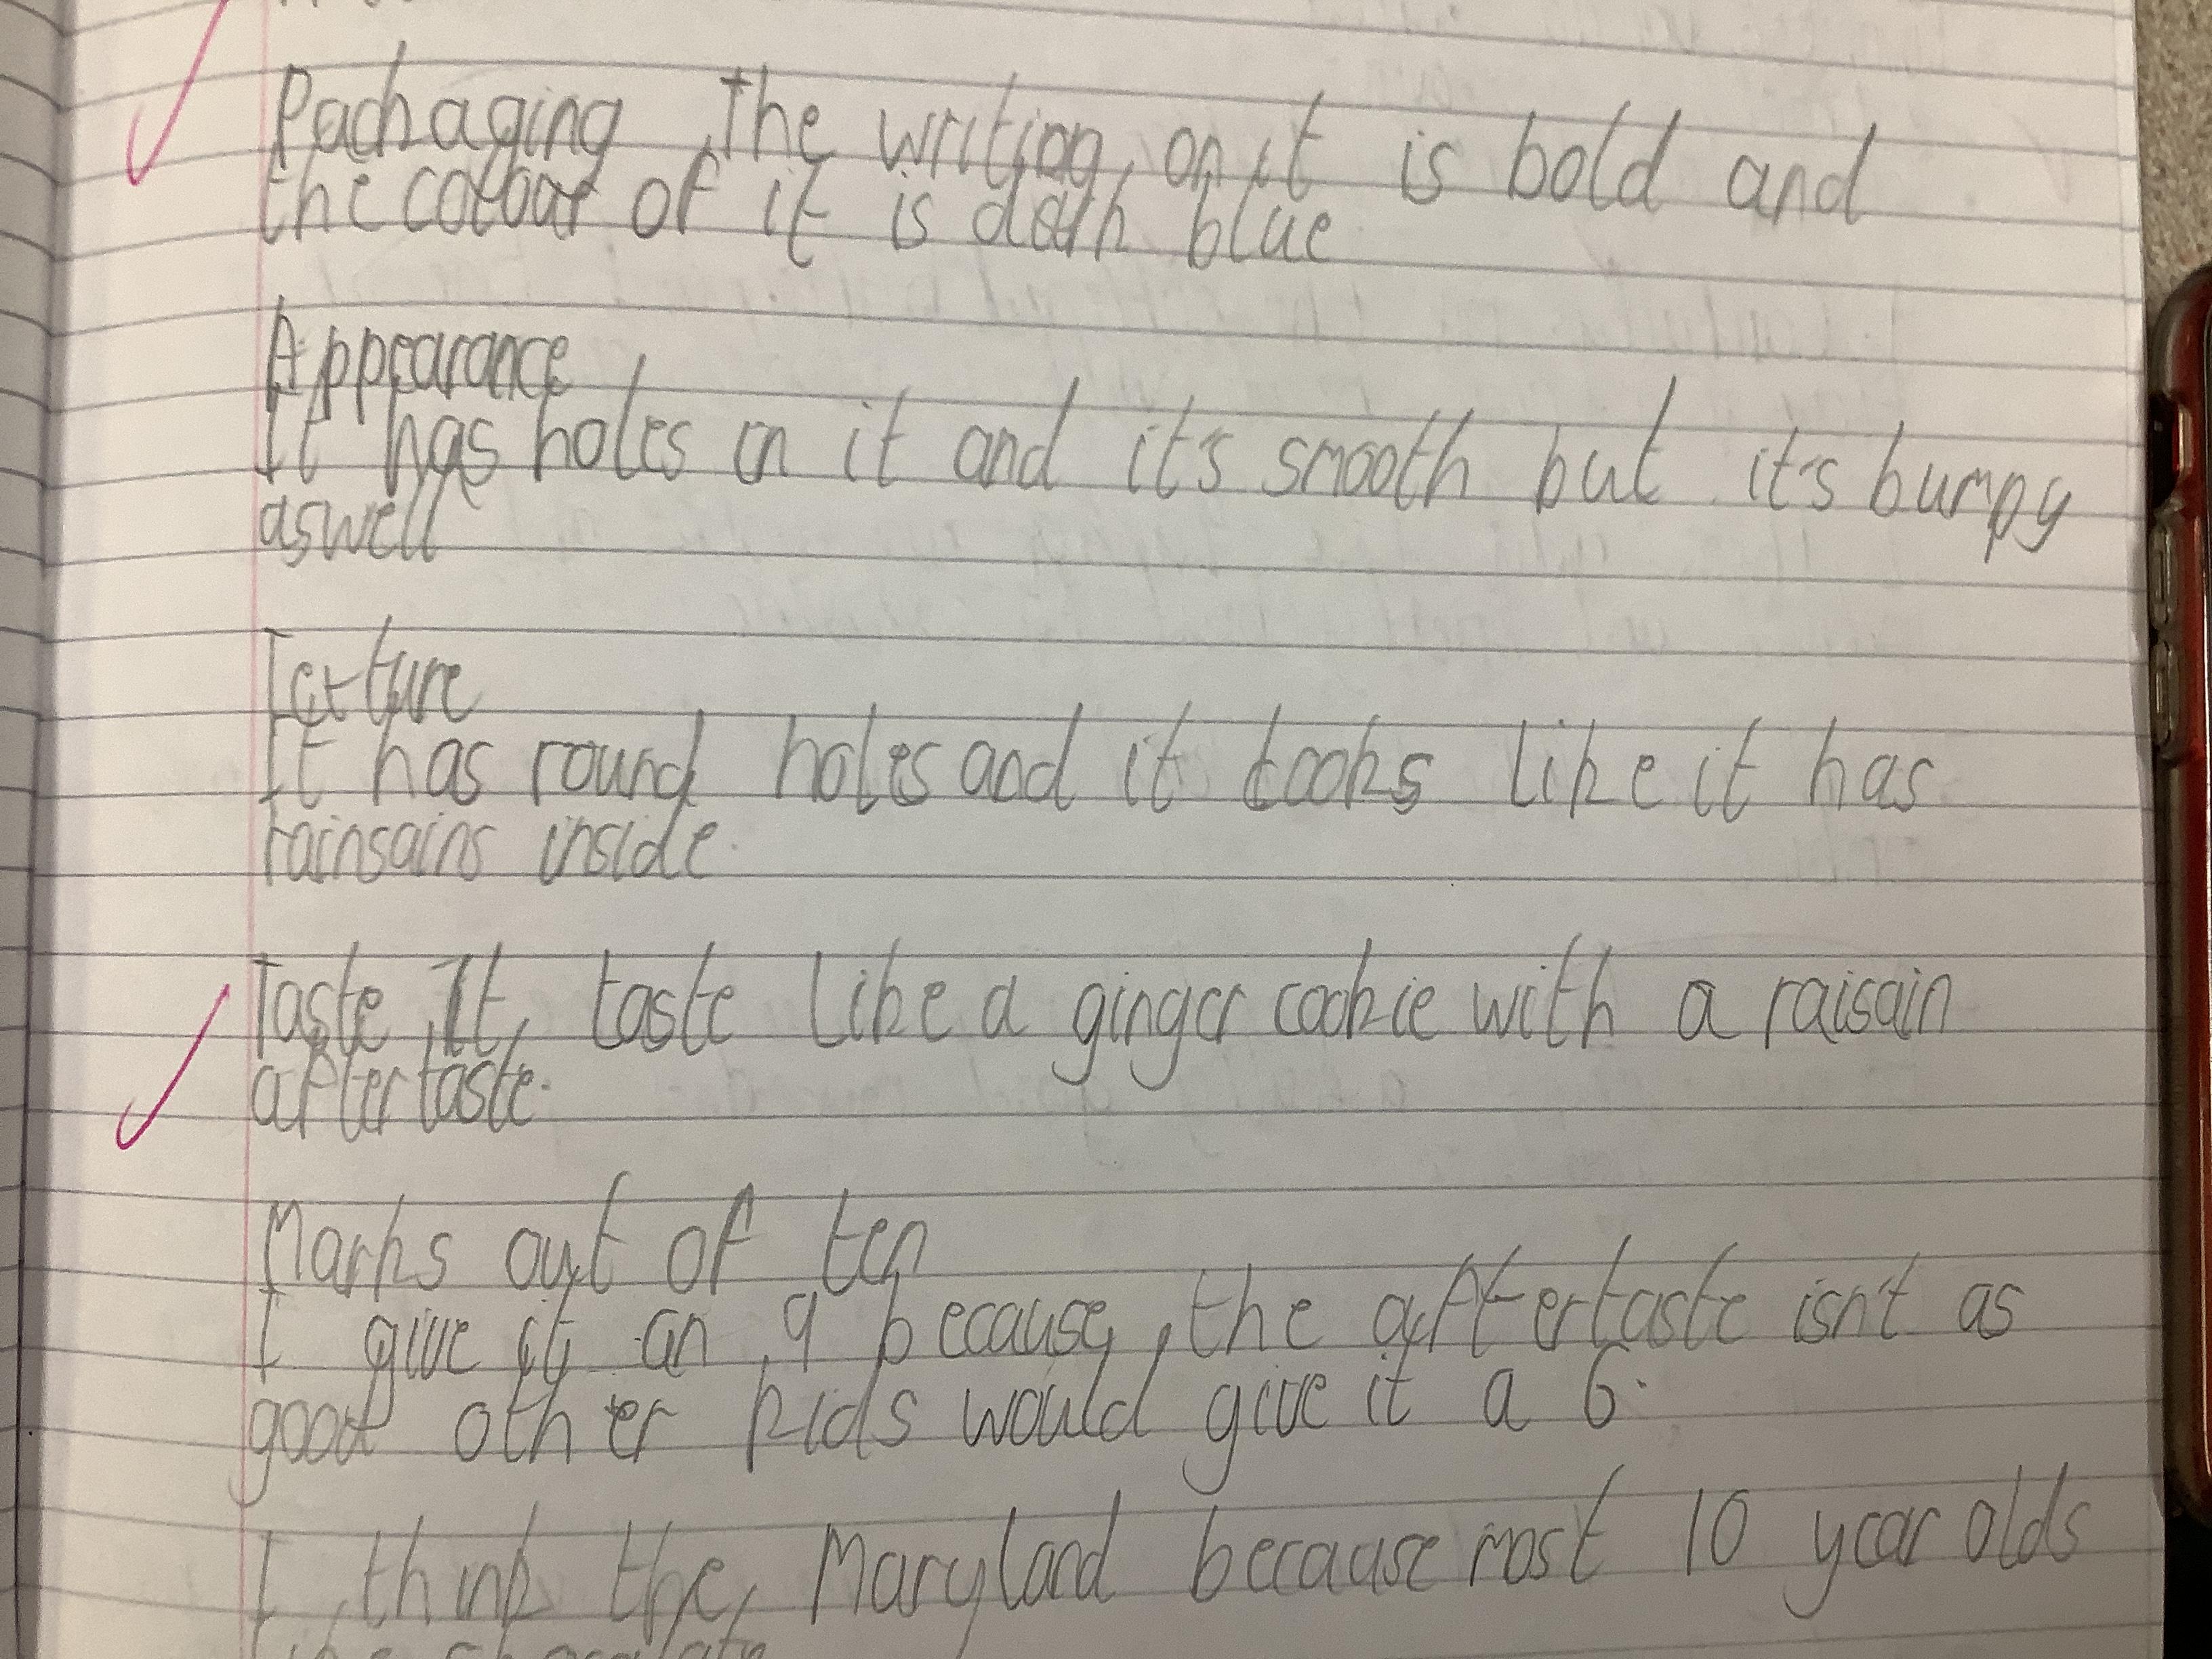 Packaging The writing on it is bold and
the colour of it is dark blue
Appearance
It has holes in it and it's smooth but it's bumpy
aswell
Texture
It has round holes and it looks like it has
rainsains inside.
Taste It taste like a ginger cookie with a raisain
aftertaste.
Marks out of ten
I give it an 9 because the aftertaste isn't as
good other kids would give it a 6.
I think the Maryland because most 10 year olds
like chocolate